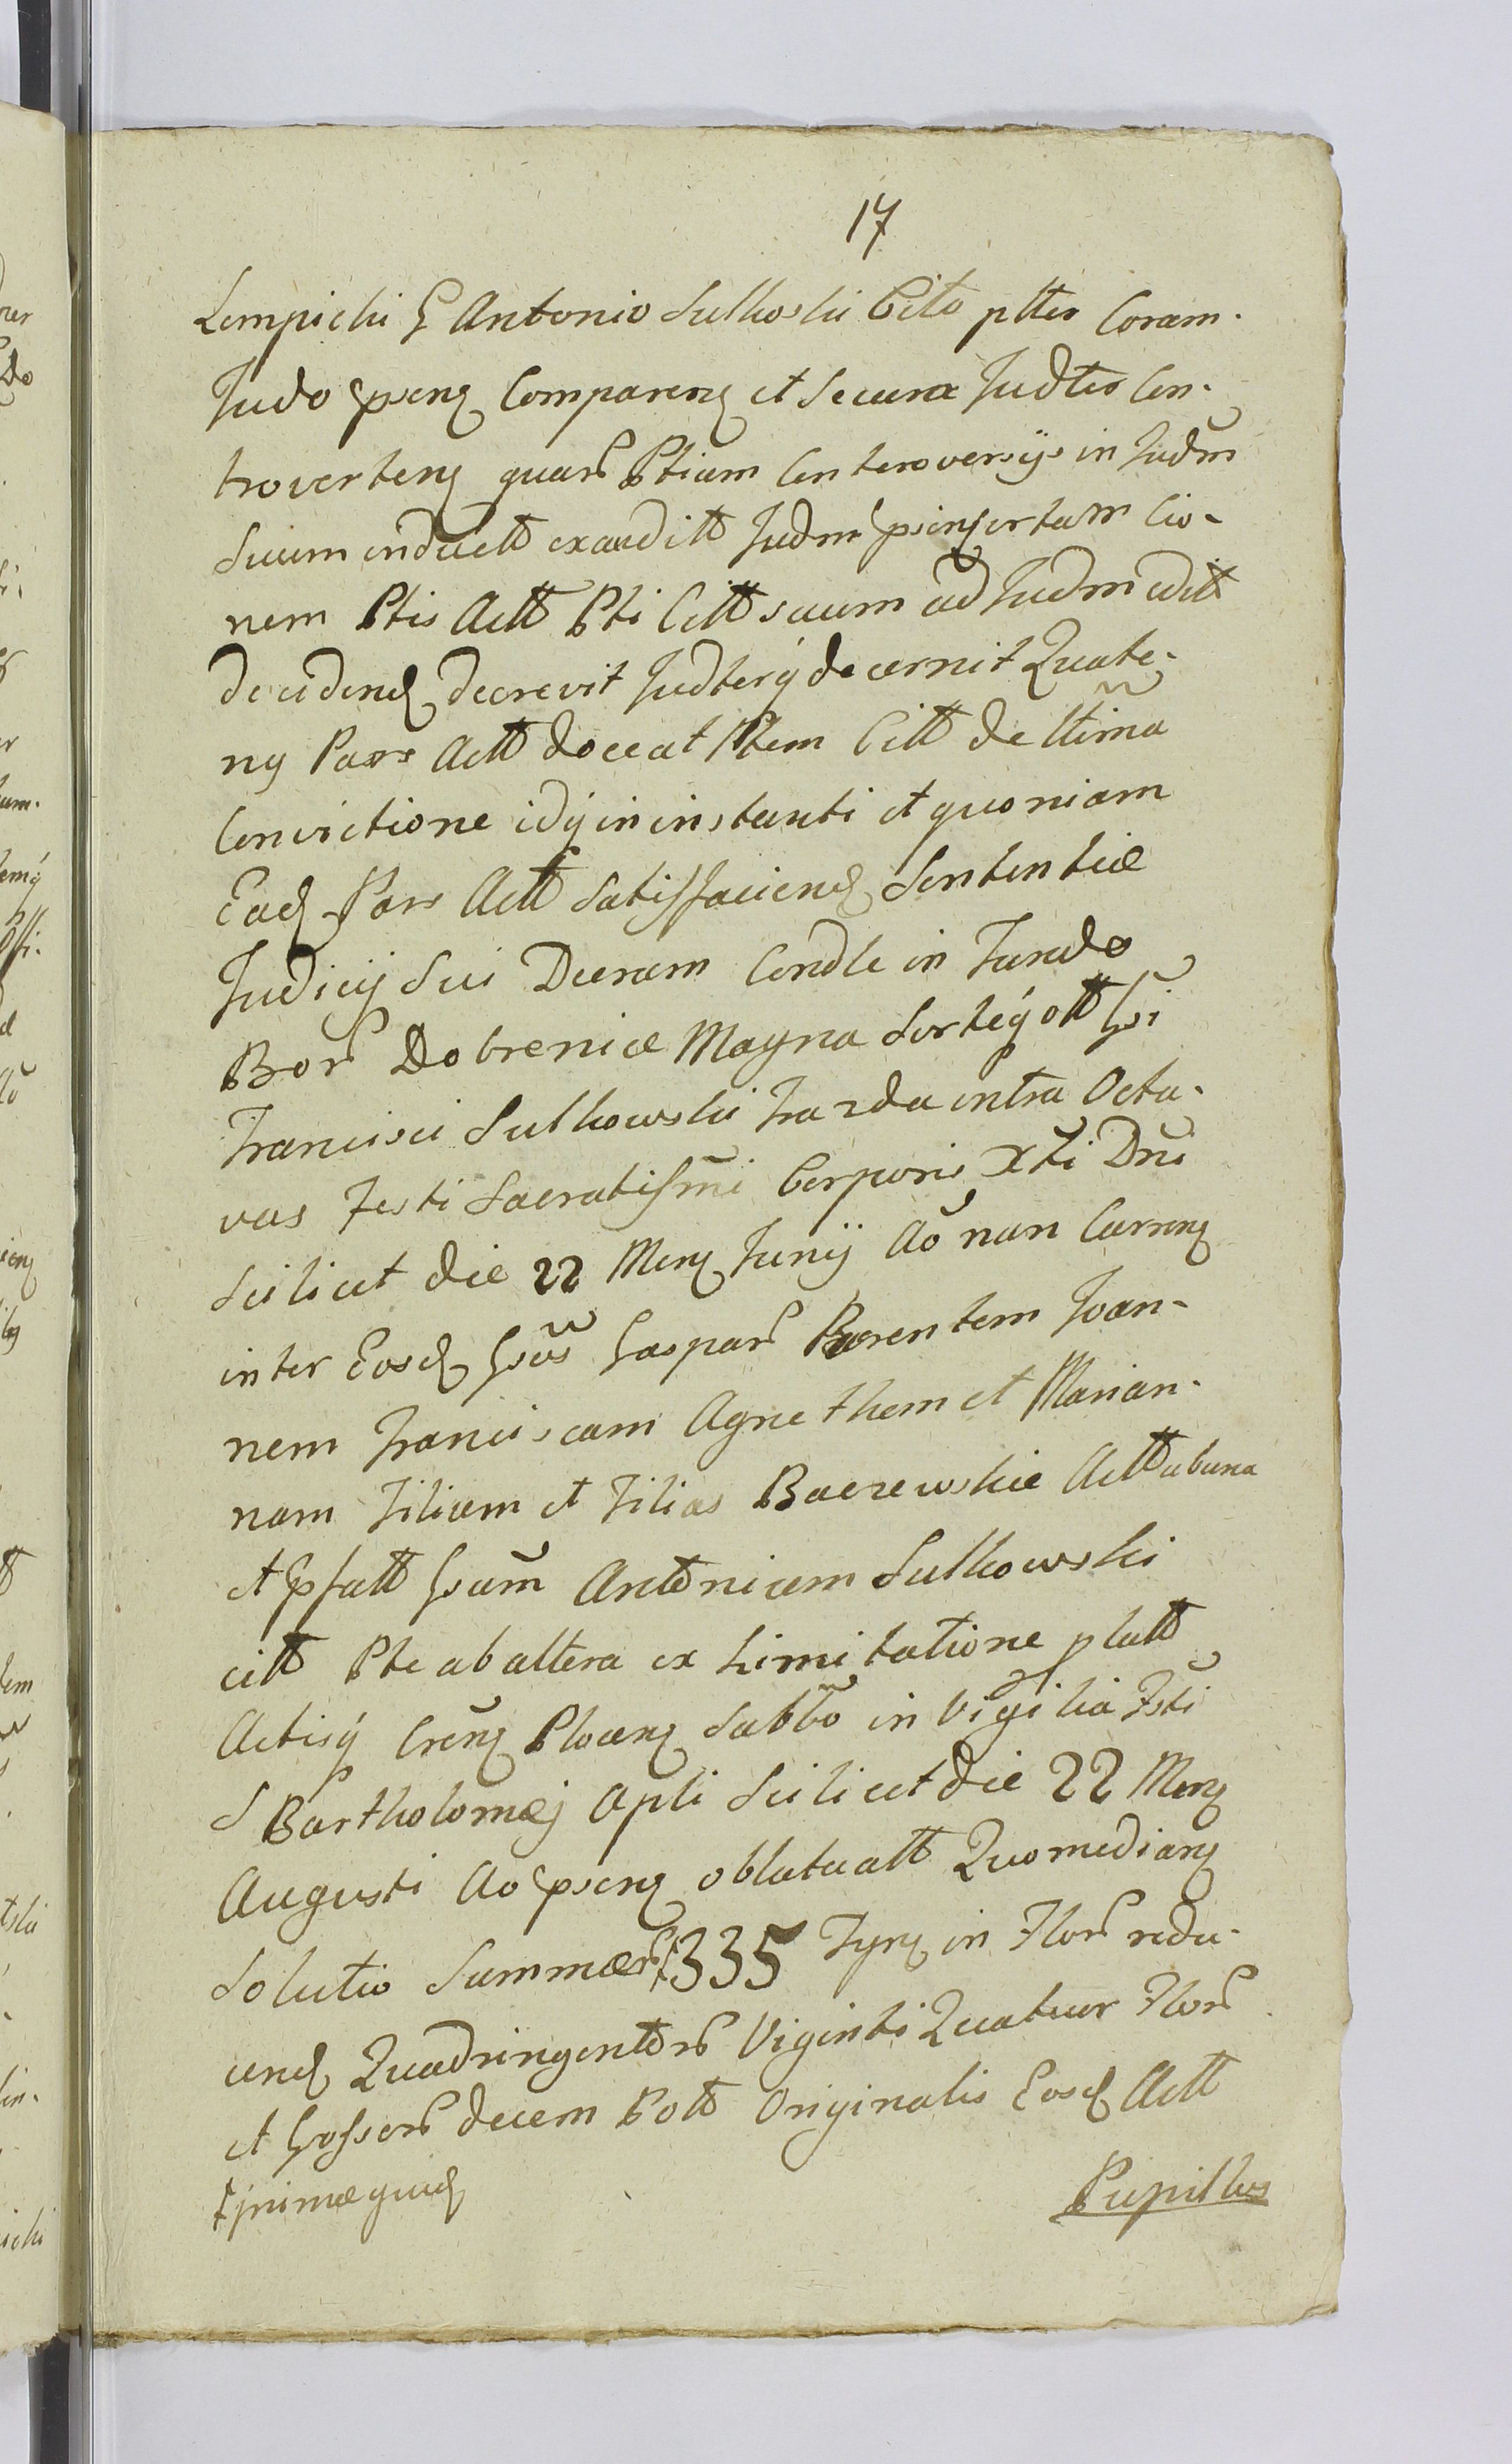 17
Lempicki G Antonio Sulkoski Cito ptter Coram.
Judo psenq Comparenq et secum Judter Con-
trovertenq quar Ptium Controversijs in Judm
Suum induct exaudit Judm psinsertam Cio-
nem Ptis Actt Pti Citt suum ad Judm edit
decidend decrevit Judterq decernit Quate-
nq Pars Actt doceat Ptem Citt de ttima
Convictione idq in instanti et quoniam
Ead Pars Actt Satisfaciend Sententiæ
Judicij Sui Decram Condle in Fundo
Bor Dobrenice Magna Sorteq ott Gsi
Francisci Sulkowski Fra2da intra Octa-
vas Festi Sacratissmi Corporis Xti Dni
Scilicet die 22 Menq Junij Ao nun Currenq
inter Eosd Gsos Gaspar Parentem Joan-
nem Franciscam Agnethem et Marian-
nam Filium et Filias Baczewskie Actt ab una
et psatt Gsum Antonium Sulkowski
citt Pte ab altera ex Limitatione platt
Actisq Crenq Plocenq Sabbo in Vigilia Fsti
S Bartholomæj Apli Scilicet die 22 Menq
Augusti Ao psenq oblatu att Quo medianq
Solutio Summær ⸸ 335 Tynq in Flor redu-
cend Quadringentor Viginti Quatuor Flor
et Grossor decem Pott Originalis Eosd Actt
⸸ primæ quid
Pupillos